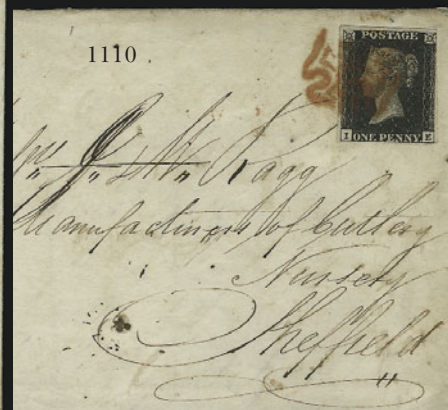 1110
POSTAGE
I E
ONE PENNY
Ragg
Manufacturers of Cutlery
Nursery
Sheffield